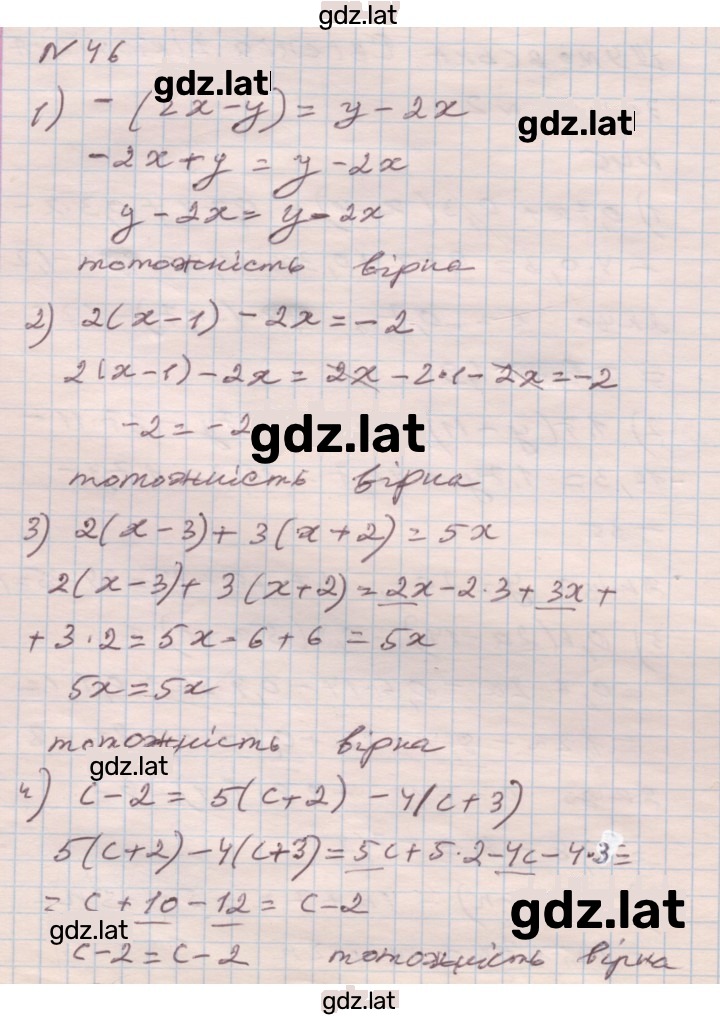 gdz.lat
№ 46
gdz.lat
1) -(2x-y) = y - 2x
gdz.lat
-2x+y = y-2x
y-2x = y-2x
тотожність вірна
2) 2(x-1) - 2x = -2
2(x-1) - 2x = 2x - 2·1 - 2x = -2
-2 = -2
gdz.lat
тотожність вірна
3) 2(x-3) + 3(x+2) = 5x
2(x-3) + 3(x+2) = 2x - 2·3 + 3x +
+ 3·2 = 5x - 6 + 6 = 5x
5x = 5x
тотожність вірна
gdz.lat
4) c-2 = 5(c+2) - 4(c+3)
5(c+2) - 4(c+3) = 5c + 5·2 - 4c - 4·3 =
= c + 10 - 12 = c-2
gdz.lat
gdz.lat
c-2 = c-2 тотожність вірна
gdz.lat